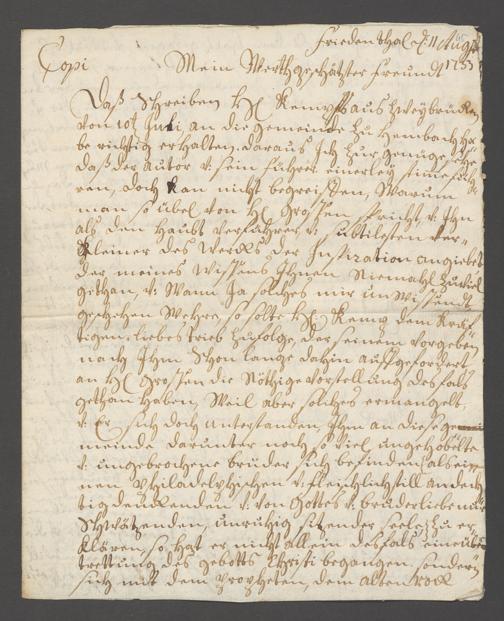 Friedensthal d: 11 Aug
1755
Copi
Mein Werthgeschätzter Freund
Daß Schreiben H. Kempffs aus Zweybrücken
von 10t Juli, an die gemeinde zu Heimbach ha-
be richtig erhalten. daraus Ich zur genüge sehe
daß der Autor u: sein führer einerley stime füh-
ren, doch kan nicht begreiffen, Warum
man so übel von H. Grossen spricht, u: Ihn
als den Haubt verführer, u: subtilesten ver-
kleiner des Wercks der Inspiration angiebet
der meines Wissens Ihnen Niemahl zu viel
gethan, u: Wann Ja solches mir unwissend
geschehen Wehre, so solte H. Kempf dem
liebes trieb zufolge, der seinem vorgeben
nach Ihm Schon lange dahin auffgefordert
an H. Grossen die Nöthige vorstellung desfals
gethan haben, Weil aber solches ermangelt,
u: Er sich doch unterstanden, Ihn an diese ge-
meinde darunter noch so viel ungehobelte
u: ungebrochene brüder sich befinden als ei-
nen Philadelphischen u: fleischlich still andäch-
tig u: von Gottes u: bruderliebe nur
Schwätzenden, unruhig sitzender seele zu er-
klären, so hat er nicht allein desfals eine über-
trettung des gebotts Christi begangen, sondern
sich mit dem Propheten, dem alten Rock